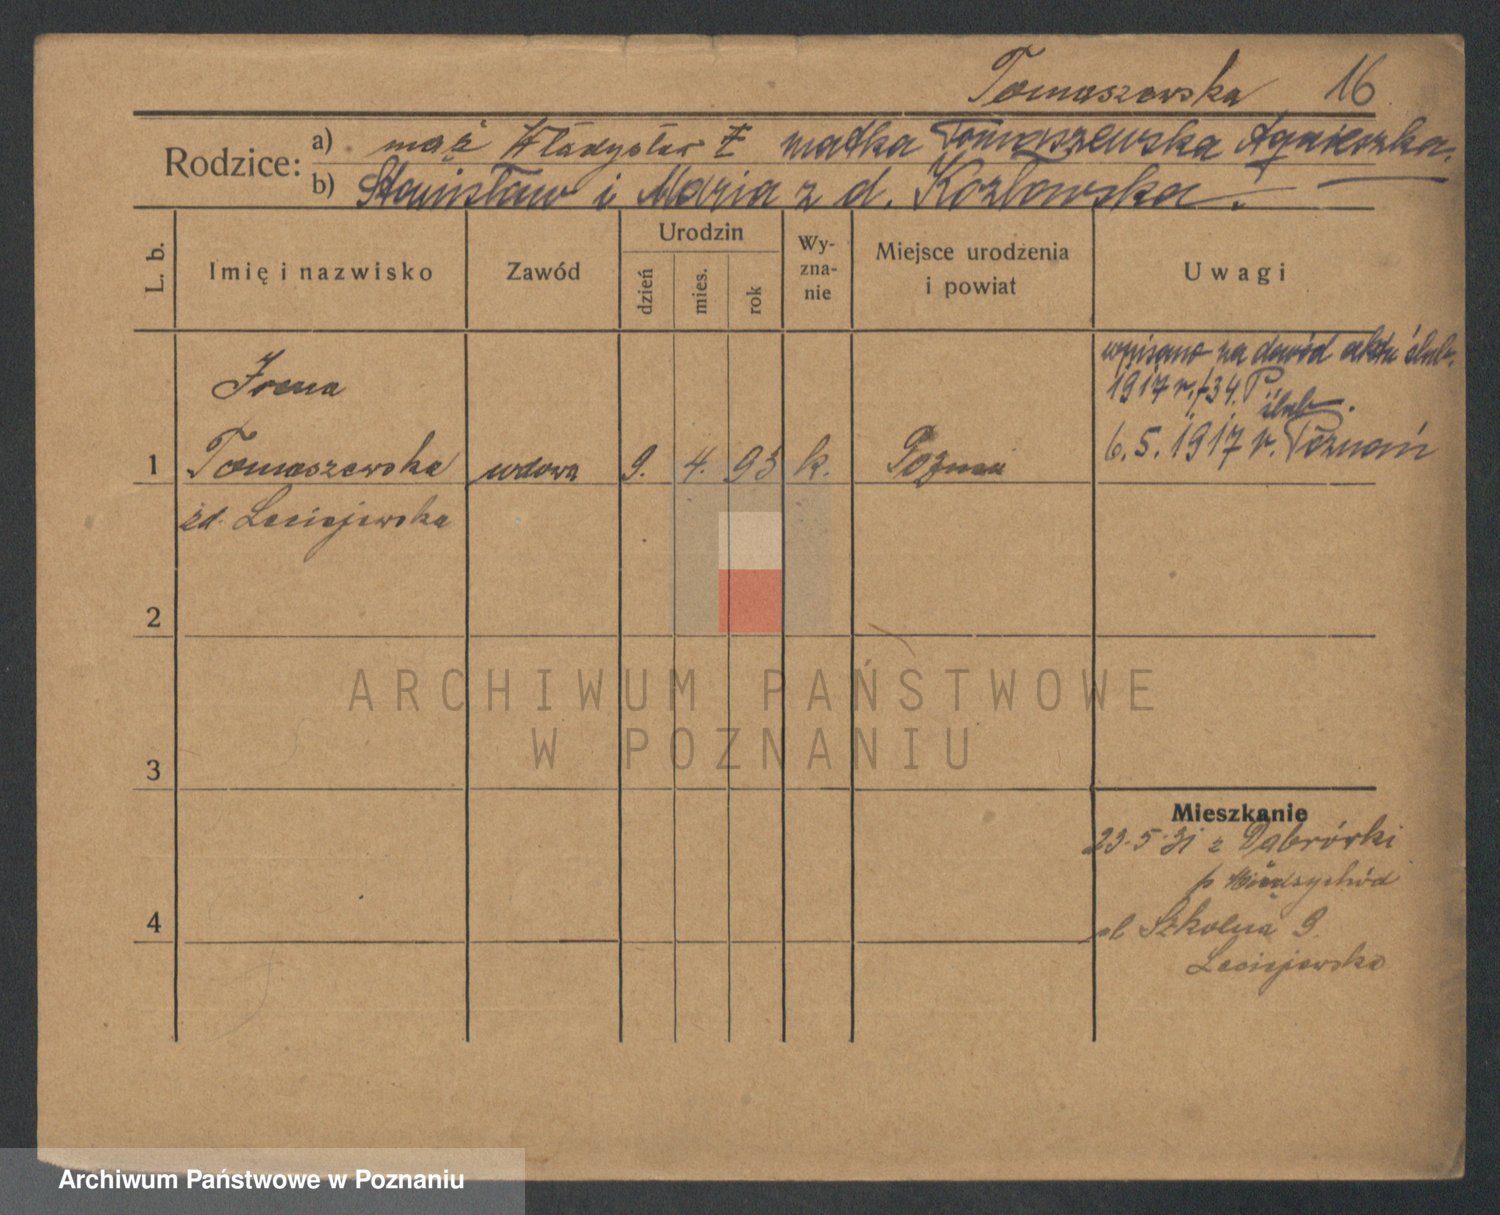 Tomaszewska 16
Rodzice:
a) mąż Władysław † matka Tomaszewska Agnieszka.
b) Stanisław i Maria z d. Kozłowska.
L. b.
Imię i nazwisko
Zawód
Urodzin
dzień
mies.
rok
Wy-
zna-
nie
Miejsce urodzenia
i powiat
Uwagi
wpisano na dowód aktu ślub.
1917 r./34. P
ślub.
6.5.1917 r. Poznań
Irena
1 Tomaszewska wdowa 9. 4. 93 k. Poznań
zd. Leciejewska
2
3
4
Mieszkanie
23.5.31 z Dąbrówki
p Międzychód
ul Szkolna 9.
Leciejewska
ARCHIWUM PAŃSTWOWE
W POZNANIU
Archiwum Państwowe w Poznaniu